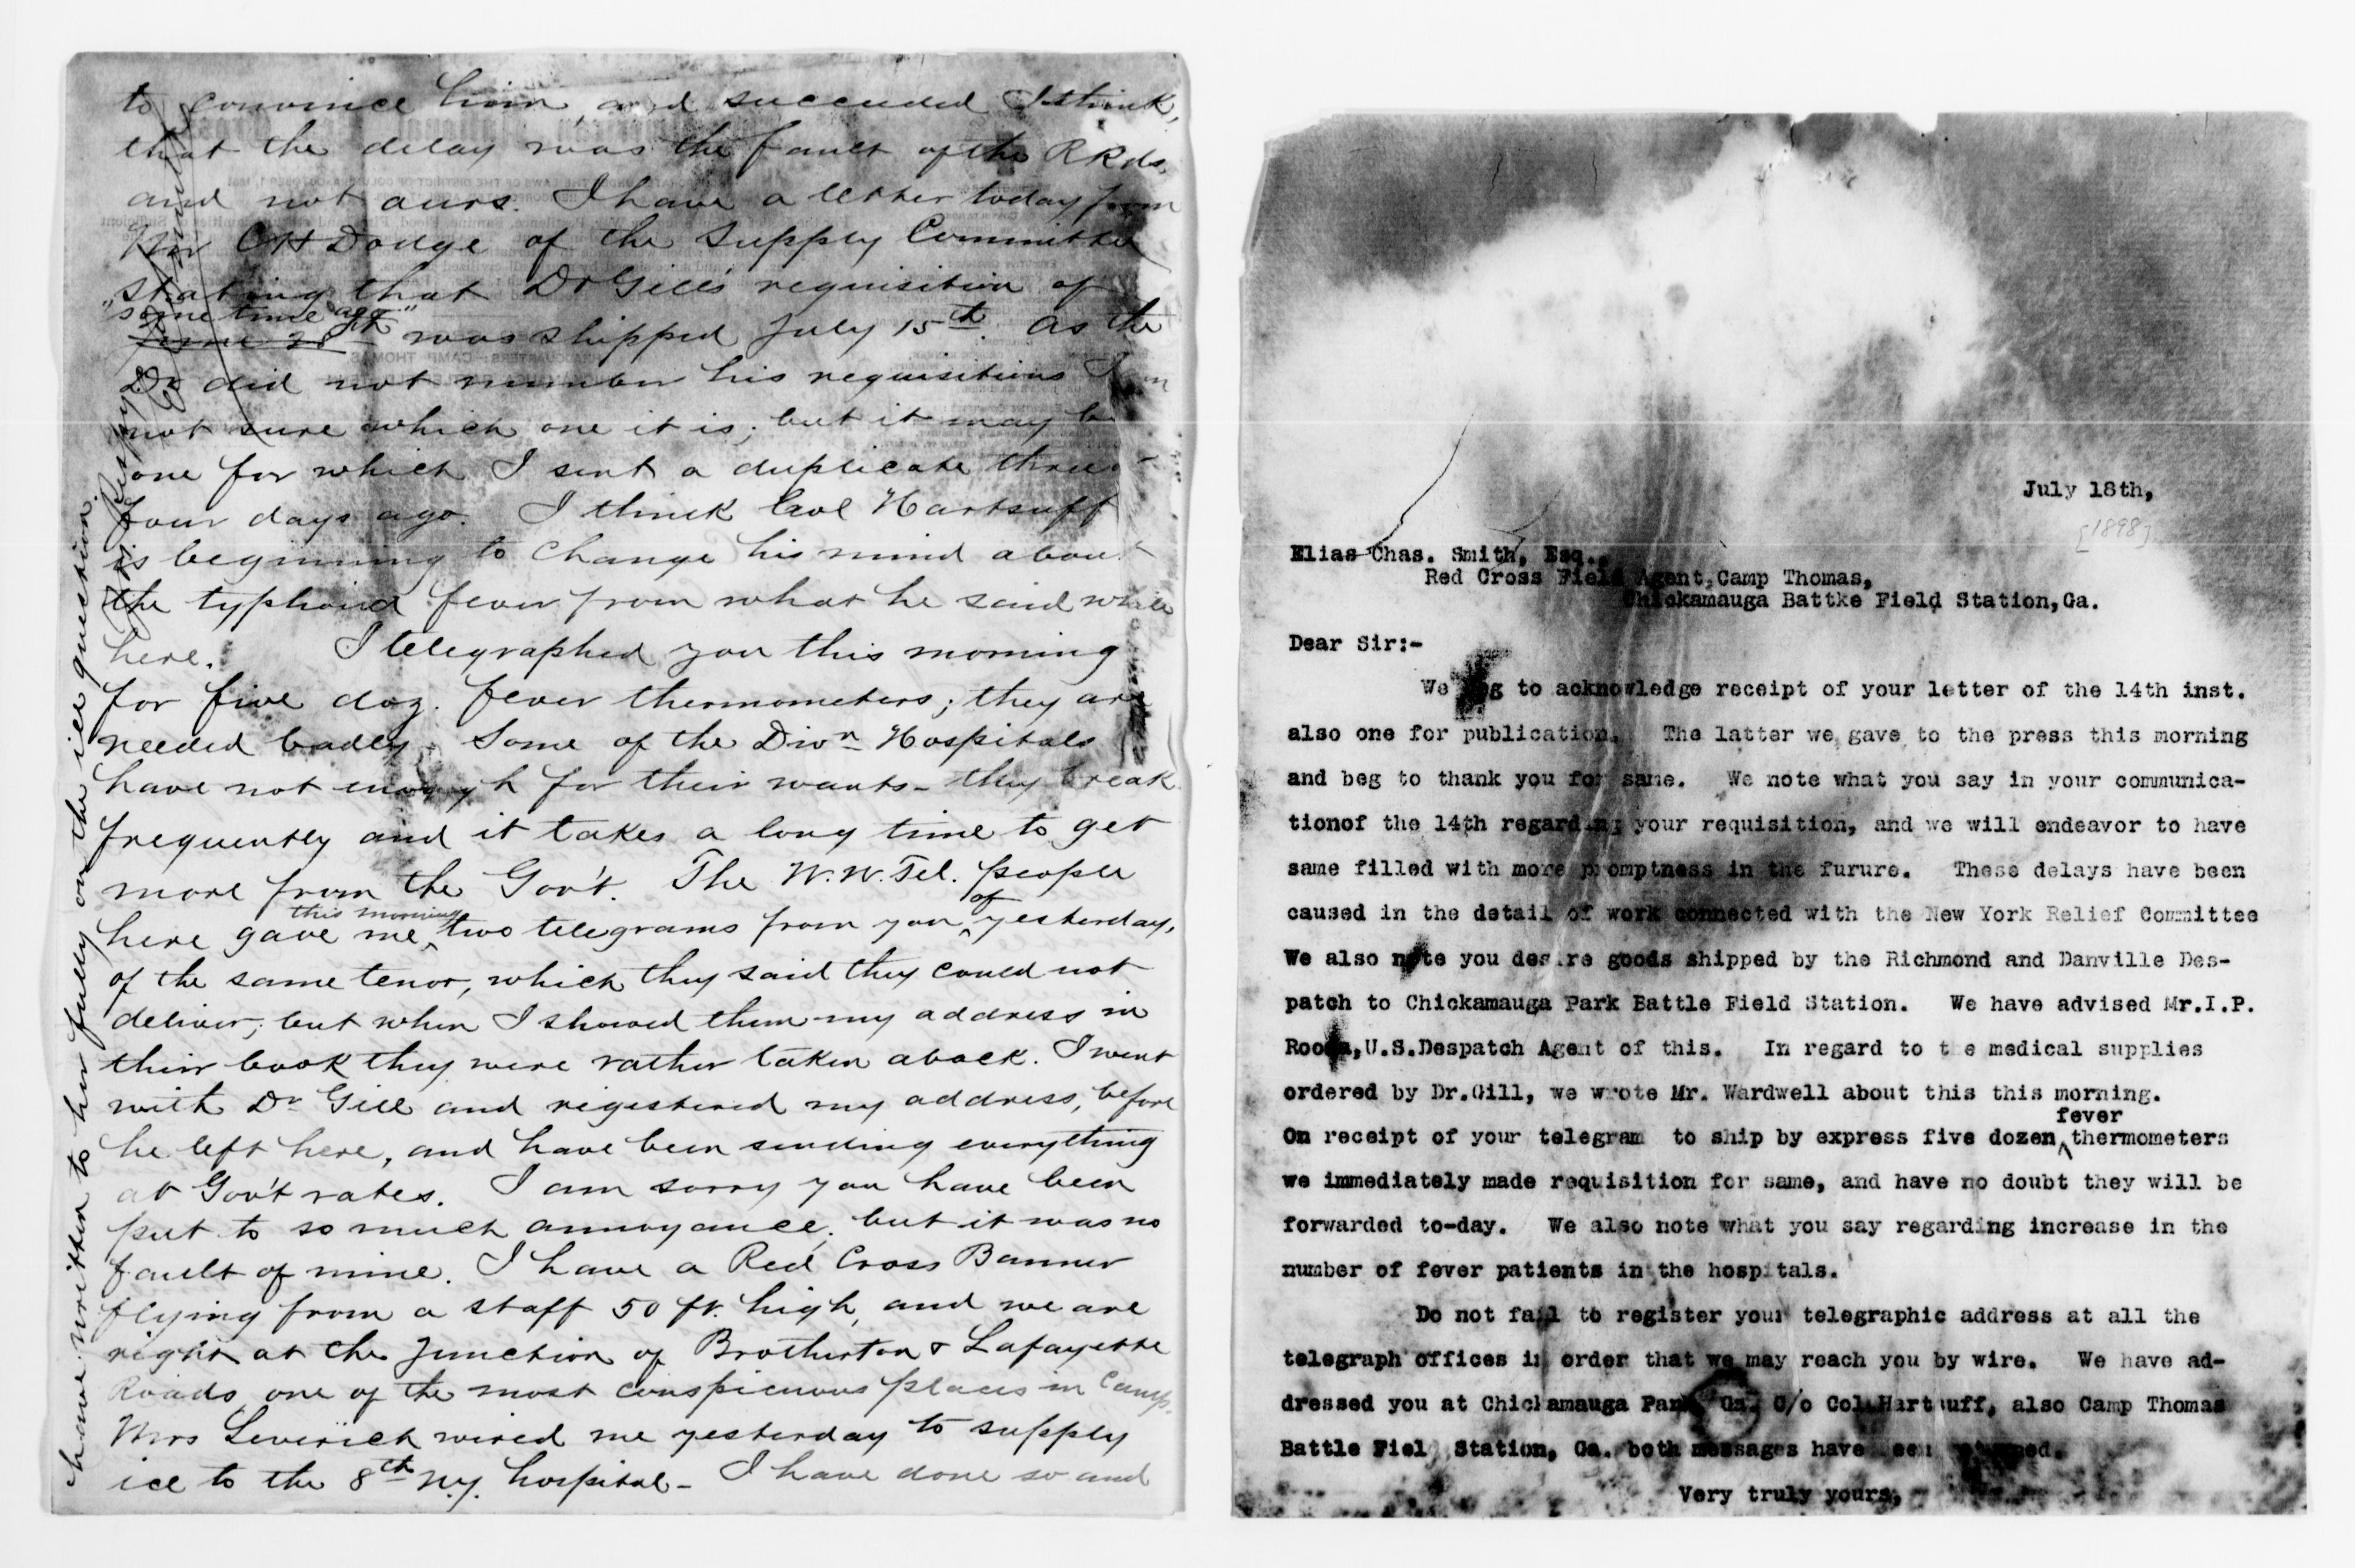 to convince him, and succeeded I think,
that the delay was the fault of the RRds
and not ours. I have a letter today from
Mr CH Dodge of the Supply Committee
stating that Dr Gill's requisition of
"some time ago"
June 28th was shipped July 15th. As the
Dr did not number his requisitions I am
not sure which one it is; but it may be
one for which I sent a duplicate three or
four days ago. I think Col Hartsuff
is beginning to change his mind about
the typhoid fever from what he said while
here. I telegraphed you this morning
for five doz. fever thermometers; they are
needed badly. Some of the Divn Hospitals
have not enough for their wants - they break
frequently and it takes a long time to get
more from the Gov't. The W.U. Tel. people
here gave me this morning two telegrams from you of yesterday,
of the same tenor, which they said they could not
deliver; but when I showed them my address in
their book they were rather taken aback. I went
with Dr Gill and registered my address, before
he left here, and have been sending everything
at Gov't rates. I am sorry you have been
put to so much annoyance, but it was no
fault of mine. I have a Red Cross Banner
flying from a staff 50 ft. high, and we are
right at the junction of Brotherton & Lafayette
Roads, one of the most conspicuous places in Camp.
Mrs Leverich wired me yesterday to supply
ice to the 8th N.Y. hospital - I have done so and
have written to her fully on the ice question.
July 18th,
[1898]
Elias Chas. Smith, Esq.,
Red Cross Field Agent, Camp Thomas,
Chickamauga Battke Field Station, Ga.
Dear Sir:-
We beg to acknowledge receipt of your letter of the 14th inst.
also one for publication. The latter we gave to the press this morning
and beg to thank you for same. We note what you say in your communica-
tionof the 14th regarding your requisition, and we will endeavor to have
same filled with more promptness in the furure. These delays have been
caused in the detail of work connected with the New York Relief Committee
We also note you desire goods shipped by the Richmond and Danville Des-
patch to Chickamauga Park Battle Field Station. We have advised Mr.I.P.
Roosa,U.S.Despatch Agent of this. In regard to the medical supplies
ordered by Dr.Gill, we wrote Mr. Wardwell about this this morning.
fever
On receipt of your telegram to ship by express five dozen thermometers
we immediately made requisition for same, and have no doubt they will be
forwarded to-day. We also note what you say regarding increase in the
number of fever patients in the hospitals.
Do not fail to register your telegraphic address at all the
telegraph offices in order that we may reach you by wire. We have ad-
dressed you at Chickamauga Park, Ga. C/o Col.Hartsuff, also Camp Thomas
Battle Field Station, Ga. both messages have been returned.
Very truly yours,